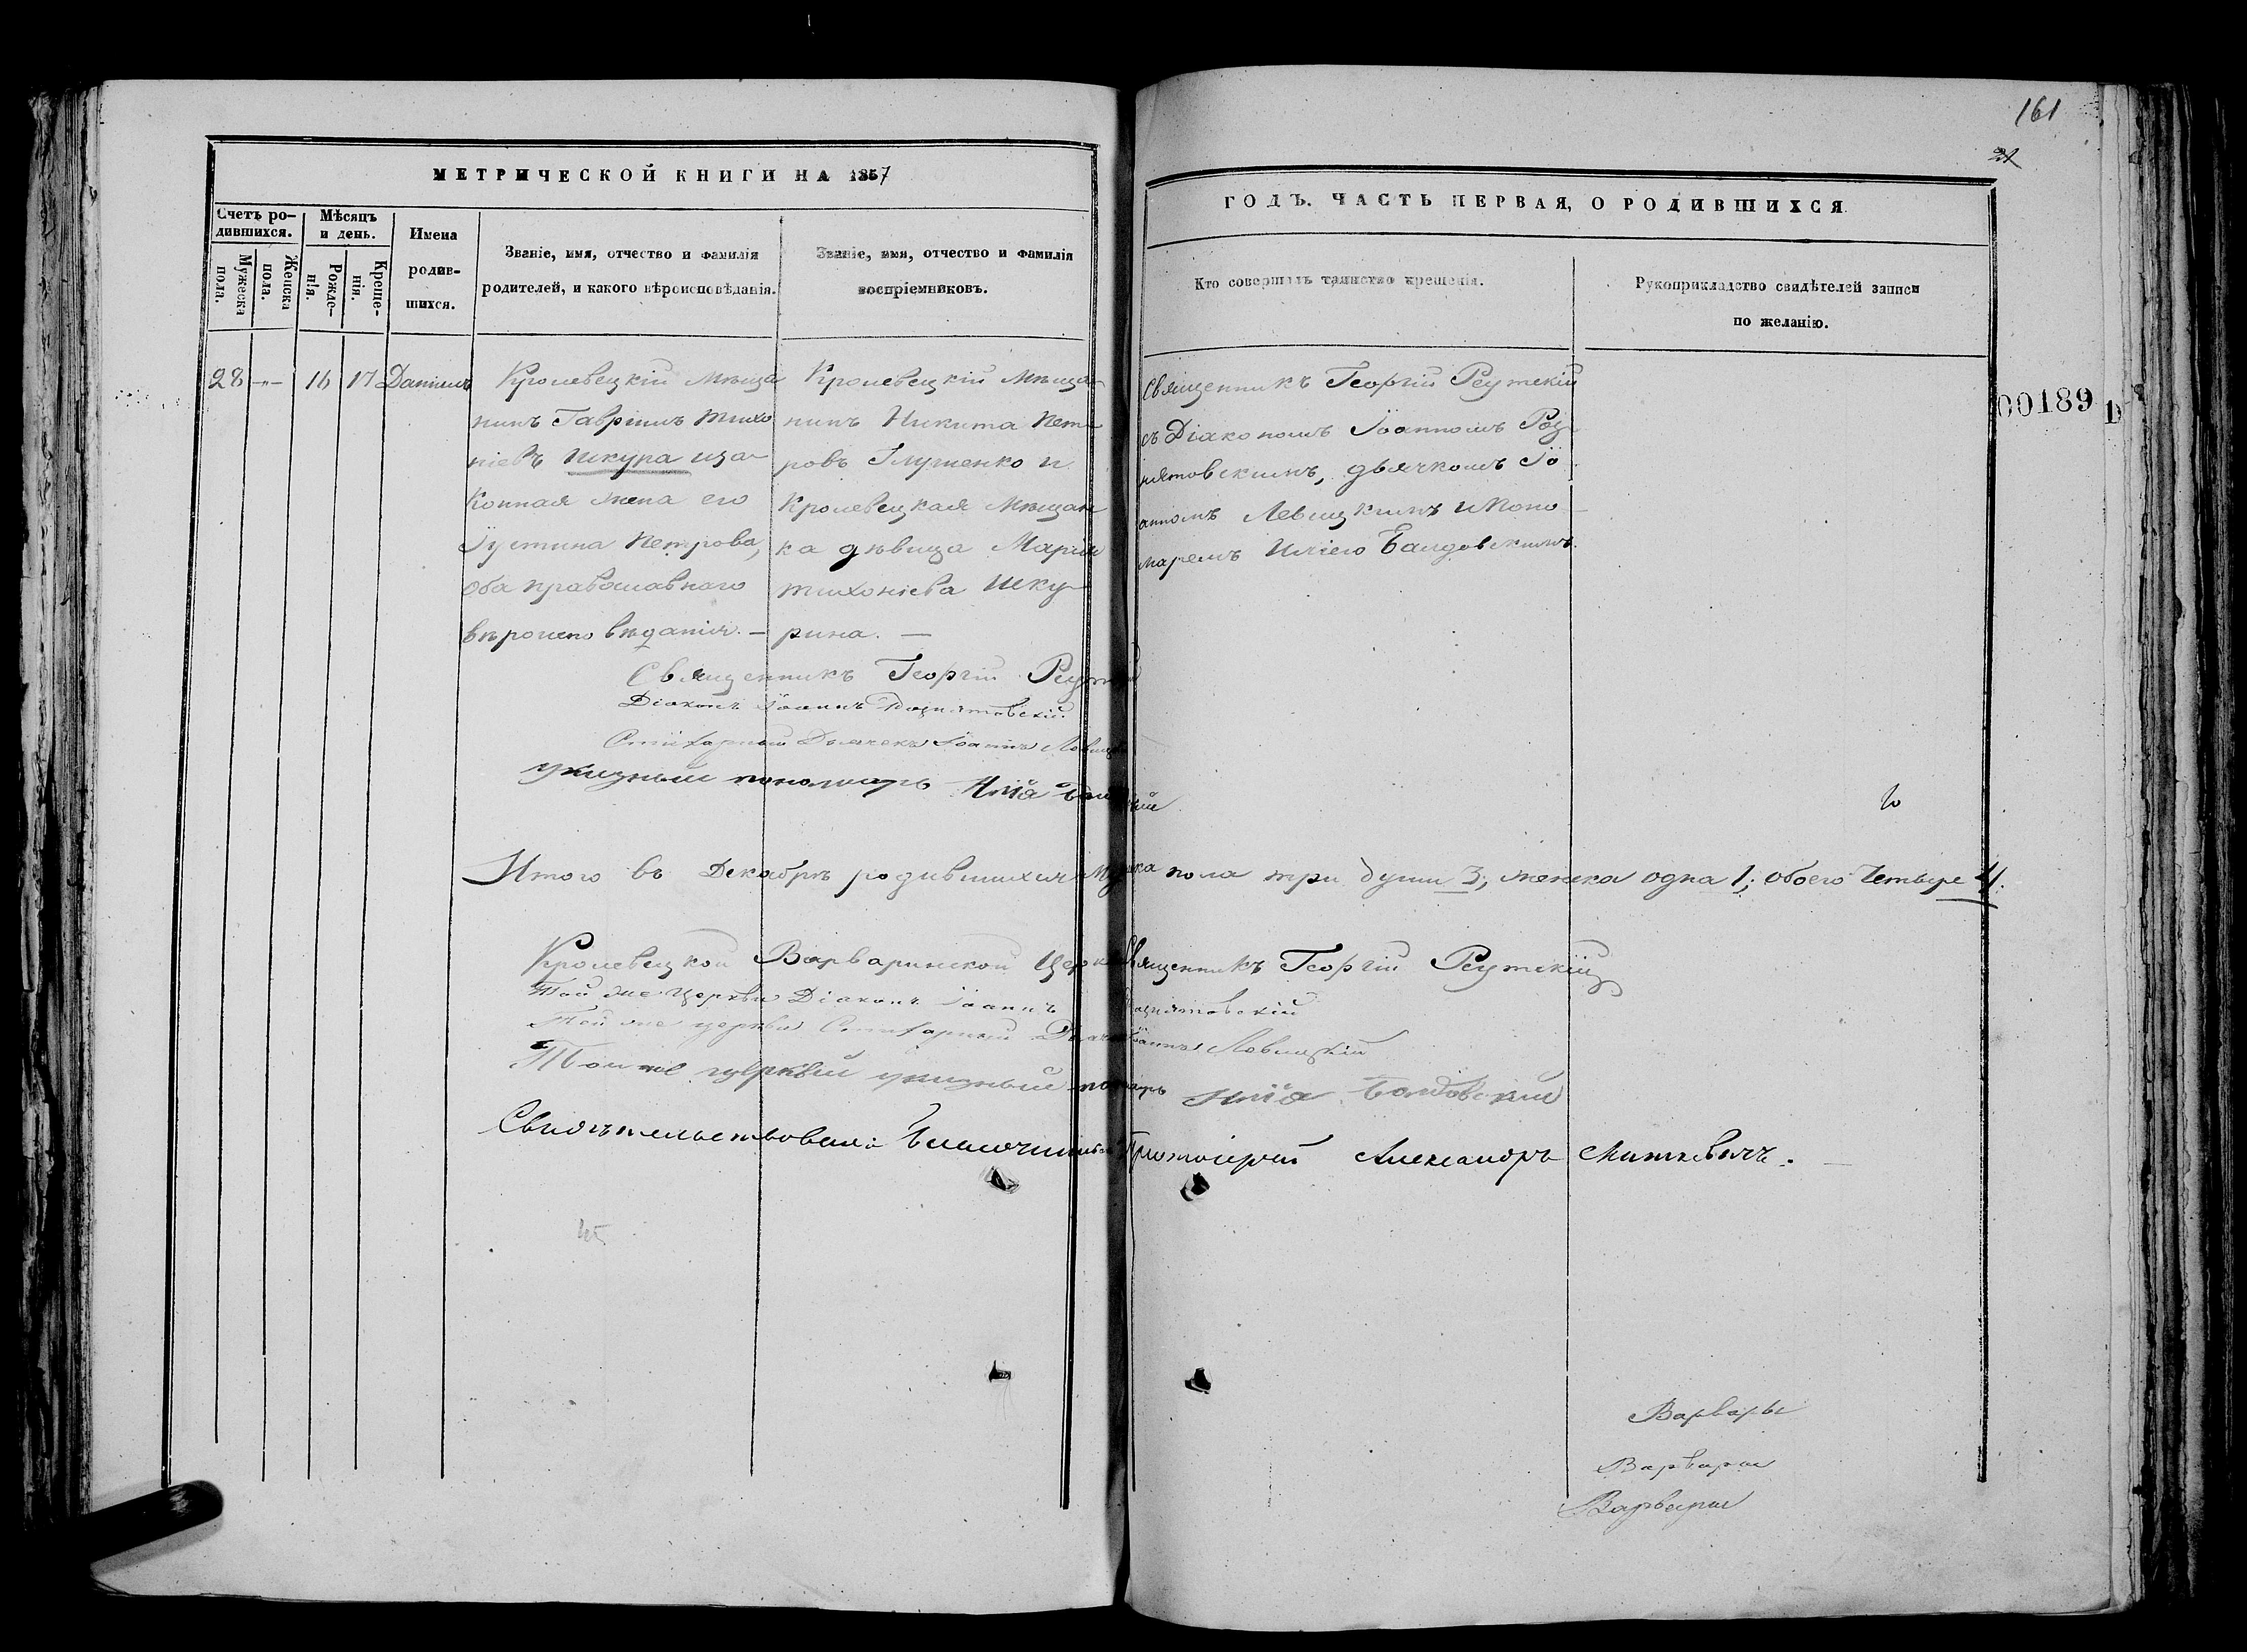 161
МЕТРИЧЕСКОЙ КНИГИ НА 1857
ГОДЪ. ЧАСТЬ ПЕРВАЯ, О РОДИВШИХСЯ
Счетъ ро-
дившихся.
Мужеска
пола.
Женска
пола.
Мѣсяцъ
и день.
Рожде-
нія.
Креще-
нія.
Имена
родив-
шихся.
Званіе, имя, отчество и фамилія
родителей, и какого вѣроисповѣданія.
Званіе, имя, отчество и фамилія
воспріемниковъ.
Кто совершалъ таинство крещенія.
Рукоприкладство свидѣтелей записи
по желанію.
28 -"- 16 17 Даніилъ
Кролевецкій мѣща
нинъ Гавріилъ Тихо
ніевъ Шкура иза-
конная жена его
Іустина Петрова,
оба православнаго
вѣроисповѣданія. —
Кролевецкій Мѣща-
нинъ Никита Пет-
ровъ Глушенко и
Кролевецкая Мѣщан
ка дѣвица Марія
Тихоніева Шку-
рина. —
Священникъ Георгій Реутскій
съ Діакономъ Іоанномъ Роз-
нятовскимъ, дьячкомъ Іо
анномъ Левицкимъ и Поно-
маремъ Иліею Балдовскимъ.
00189
Священникъ Георгій
Діаконъ Іоаннъ Рознятовскій
Стихарный Дьячекъ Іоаннъ
указный пономарь Илія
Итого въ Декабрѣ родившихся Мужска пола три души 3; женска одна 1; обоего Четыре 4.
Кролевецкой Варваринской Церкви Священникъ Георгій Реутскій
Той же Церкви Діаконъ Іоаннъ Рознятовскій
Той же церкви Стихарный Дьячекъ Іоаннъ Левицкій
Той же церкви указный пономарь Илія Балдовскій
Свидѣтельствовалъ Благочинный Протоіерей Александръ Миткевичъ. —
Варвары
Варвары
Варвары